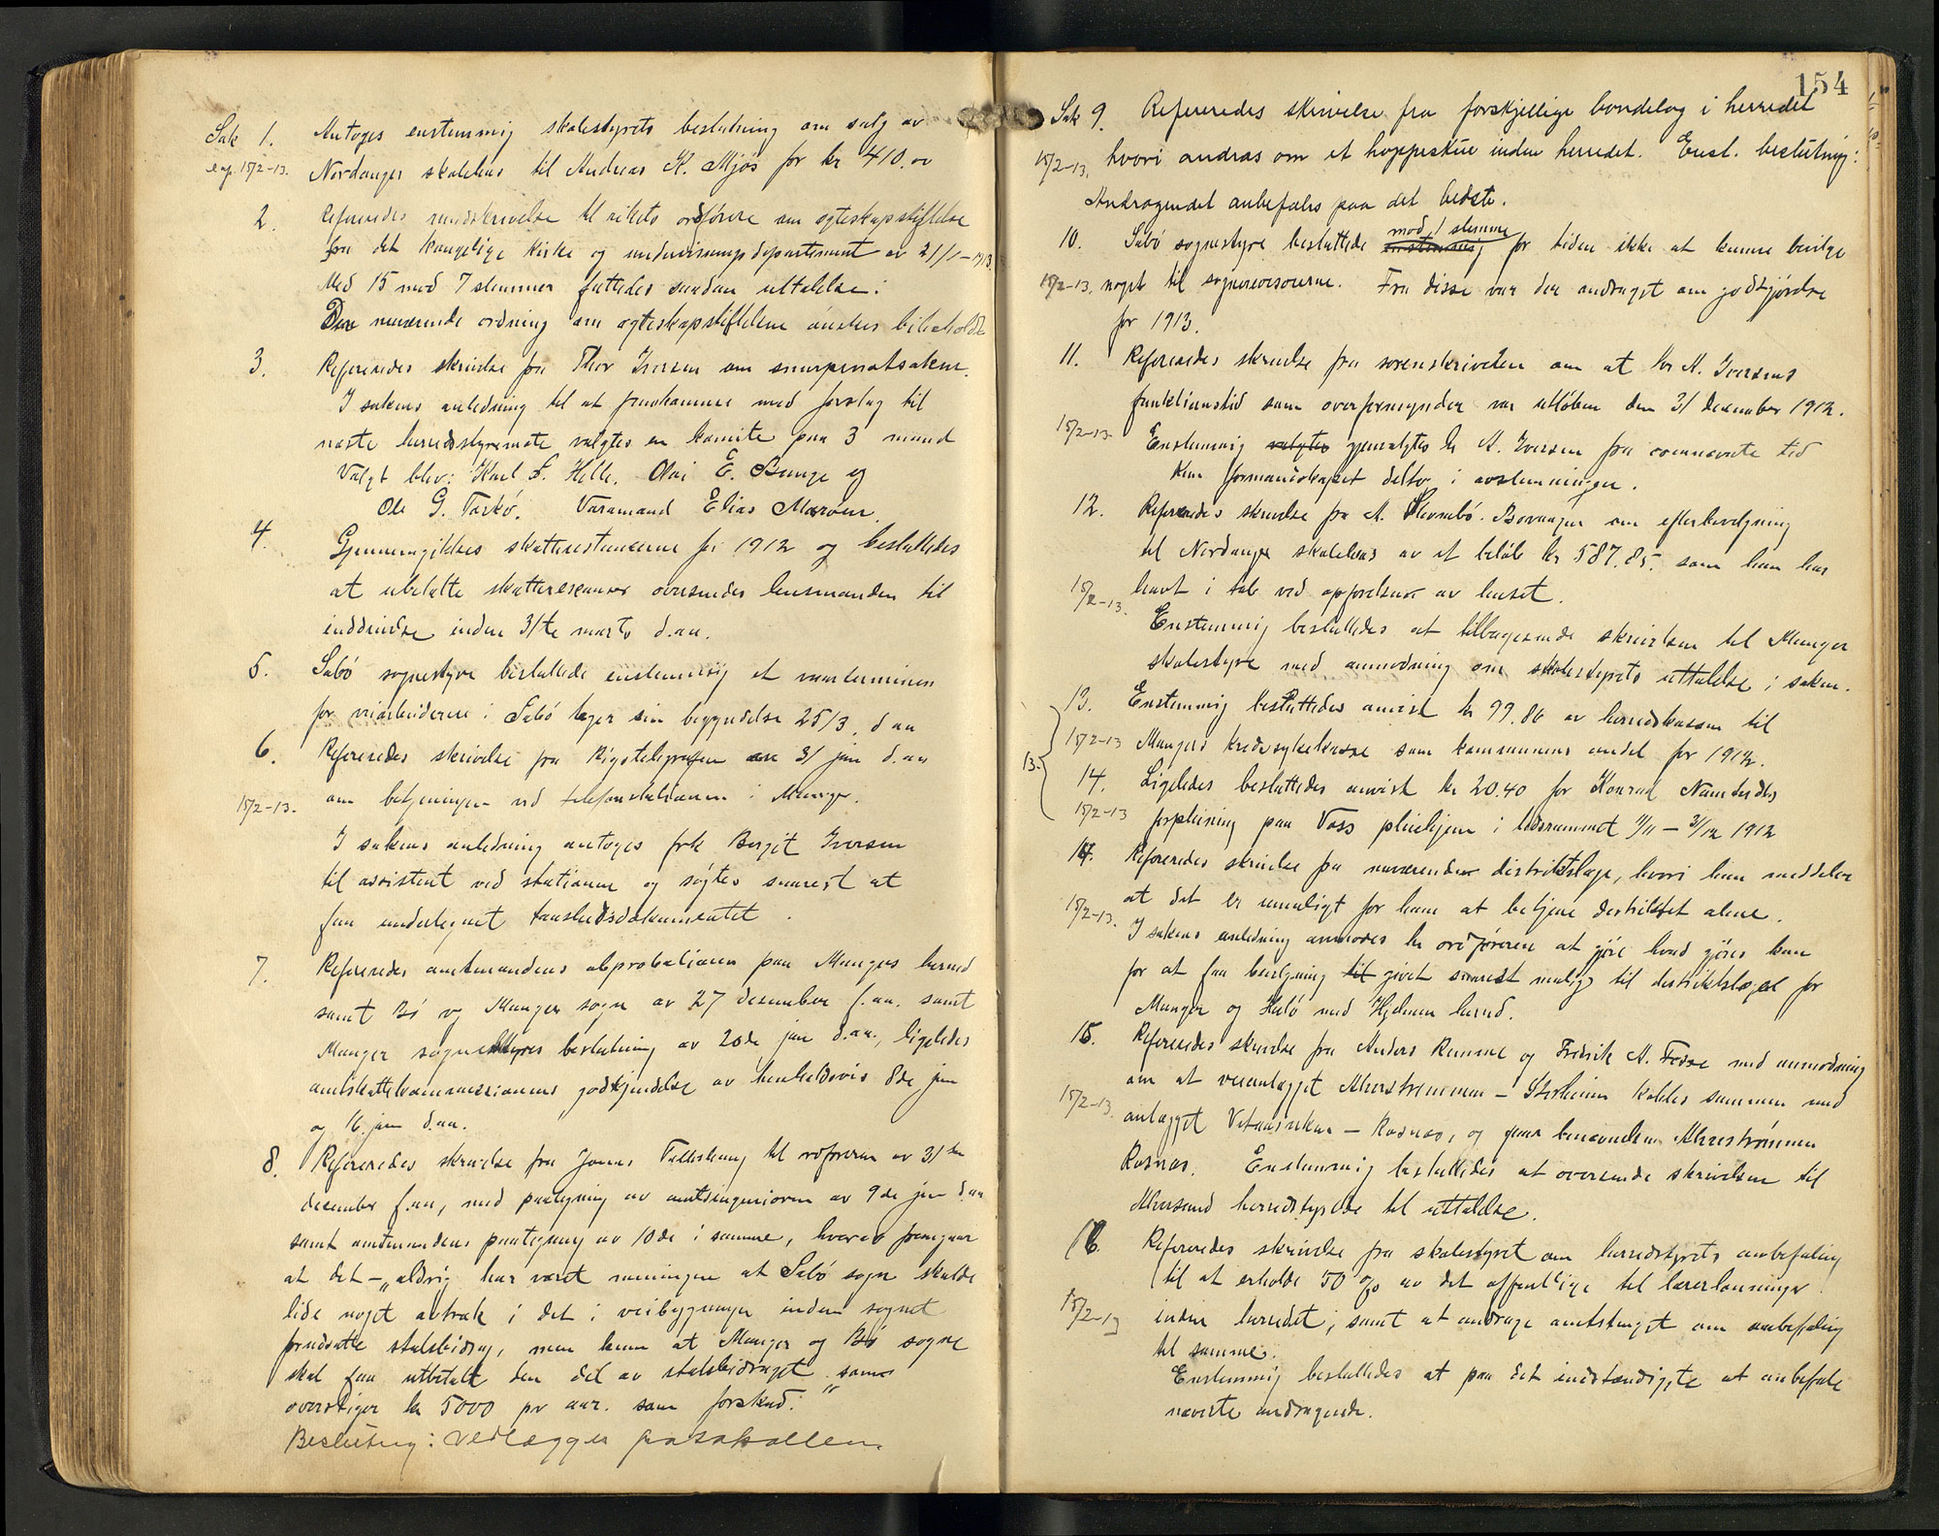 Sak 1. Antoges enstemmig skolestyrets beslutning om salg av
exp. 15/2-13. Nordanger skolehus til Andreas K. Mjøs for kr 410.00
2. Refereredes rundskrivelse til rikets ordførere om egteskapsstiftelse
fra det kongelige kirke og undervisningsdepartement av 21/1-1913.
Med 15 mod 7 stemmer fattedes saadan uttalelse:
Den nuværende ordning om egteskapsstiftelse ønskes bibeholdt
3. Refereredes skrivelse fra Thor Iversen om snurpenotsaken.
I sakens anledning til at fremkomme med forslag til
næste herredsstyremøte valgtes en komite paa 3 mand
Valgt blev: Karl F. Helle, Olai E. Bunge og
Ole G. Toskø. Varamand Elias Marøen.
4. Gjennemgikkes skatterestancerne for 1912 og besluttedes
at ubetalte skatterestancer oversendes lensmanden til
inddrivelse inden 31te marts d.aa.
5. Sæbø sognestyre besluttede enstemmig at vaarterminen
for veiarbeiderne i Sæbø tager sin begyndelse 25/3. d aa
6. Refereredes skrivelse fra Rigstelegrafen av 31 jan d.aa
15/2-13. om betjeningen ved telefonstationen i Manger.
I sakens anledning antoges frk Bergit Iversen
til assistent ved stationen og søgtes snarest at
faa undertegnet taushedsdokumentet.
7. Refereredes amtmandens approbationen paa Mangers herred
samt Bø og Manger sogn av 27 desember f.aa. samt
Manger sognestyres beslutning av 20de jan d.aa., ligeledes
amtskattekommissionens godkjendelse av henholdsvis 8de jan
og 16. jan d.aa.
8. Refereredes skrivelse fra Jonas til ordføreren av 31te
december f.aa, med paategning av amtsingeniøren av 9de jan d.aa
samt amtmandens paategning av 10de i samme, hvorav fremgaar
at det – „aldrig har været meningen at Sæbø sogn skulde
lide noget avtræk i det i veibygninger inden sognet
forudsatte statsbidrag, men kun at Manger og Bø sogne
skal faa utbetalt den del av statsbidraget som
overstiger kr 5000 pr aar. som forskud."
Beslutning: vedlægges protokollen.
154
Sak 9. Refereredes skrivelse fra forskjellige bondelag i herredet
15/2-13. hvori andras om et hoppeskue inden herredet. Enst. beslutning:
Andragendet anbefales paa det bedste.
mod 1 stemme
10. Sæbø sognestyre besluttede enstemmig for tiden ikke at kunne bevilge
15/2-13. noget til sognerevisorerne. Fra disse var der andraget om godtgjørelse
for 1913.
11. Refereredes skrivelse fra sorenskriveren om at hr A. Iversens
funktionstid som overformynder var utløben den 31 december 1912.
15/2-13 Enstemmig valgtes gjenvalgtes hr A. Iversen fra ovennævnte tid
Kun formandskapet deltog i avstemningen.
12. Refereredes skrivelse fra A. Bovanger om efterbevilgning
til Nordanger skolehus av et beløb kr 587.85. som han har
15/2-13. havt i tab ved opførelsen av huset.
Enstemmig besluttedes at tilbagesende skrivelsen til Manger
skolestyre med anmodning om skolestyrets uttalelse i saken.
13. Enstemmig besluttedes anvist kr 99.86 av herredskassen til
15/2-13 Mangers kredssykekasse som kommunens andel for 1912.
13.
14. Ligeledes besluttedes anvist kr 20.40 for Konrad
15/2-13 forpleining paa Voss pleiehjem i tidsrummet 1/11 – 31/12 1912
14. Refereredes skrivelse fra nuværende distriktslæge, hvori han meddeler
at det er umuligt for ham at betjene distriktet alene.
15/2-13. I sakens anledning anmodes hr ordføreren at gjøre hvad gjøres kan
for at faa bevilgning til givet snarest mulig til distriktslæge for
Manger og Herlø med Hjelmen herred.
15. Refereredes skrivelse fra Anders Kumme og Fredrik A. Fosse med anmodning
om at veianlægget Alverstrømmen – Storheim kobles sammen med
15/2-13. anlægget – Rosnes, og gives benævnelsen Alverstrømmen
Rosnes. Enstemmig besluttedes at oversende skrivelsen til
Alversund herredsstyre til uttalelse.
16. Refereredes skrivelse fra skolestyret om herredsstyrets anbefaling
til at erholde 50 % av det offentlige til lærerlønninger
15/2-13 inden herredet, samt at andrage amtstinget om anbefaling
til samme.
Enstemmig besluttedes at paa det indstændigste at anbefale
nævnte andragende.